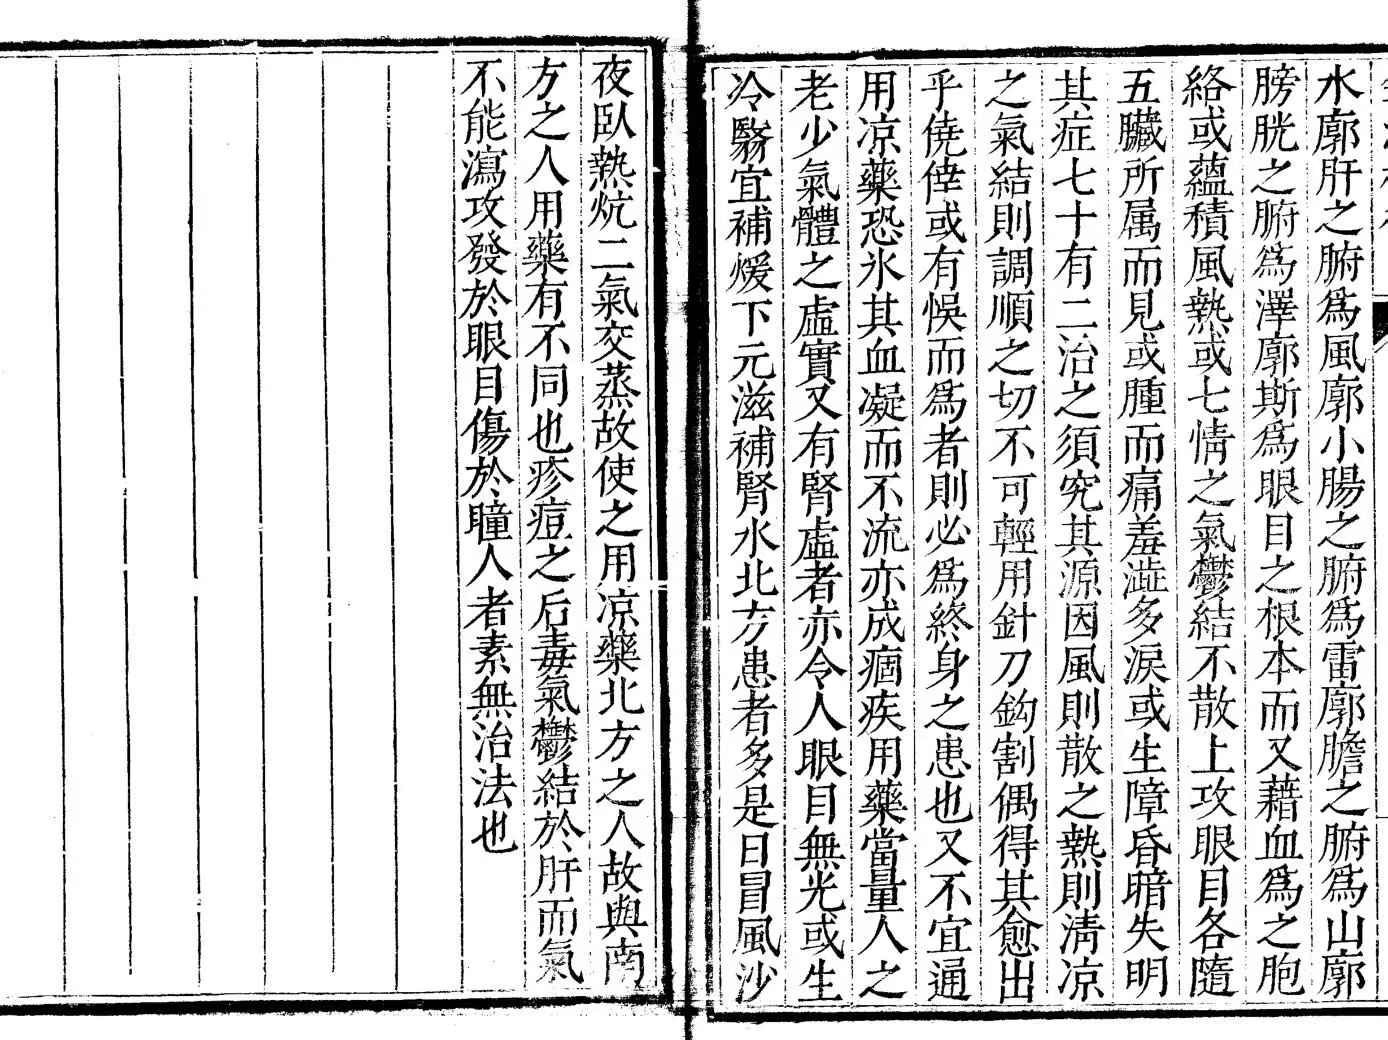 水廓肝之腑爲風廓小腸之腑爲雷廓膽之腑爲山廓
膀胱之腑爲澤廓斯爲眼目之根本而又藉血爲之胞
絡或蘊積風熱或七情之氣鬱結不散上攻眼目各隨
五臟所属而見或腫而痛羞澁多淚或生障昏暗失明
其症七十有二治之須究其源因風則散之熱則清凉
之氣結則調順之切不可輕用針刀鈎割偶得其愈出
乎僥倖或有悞而爲者則必爲終身之患也又不宜通
用凉藥恐氷其血凝而不流亦成痼疾用藥當量人之
老少氣體之虛實又有腎虛者亦令人眼目無光或生
冷翳宜補煖下元滋補腎水北方患者多是日冒風沙
夜臥熱炕二氣交蒸故使之用凉藥北方之人故與南
方之人用藥有不同也疹痘之后毒氣鬱結於肝而氣
不能瀉攻發於眼目傷於瞳人者素無治法也